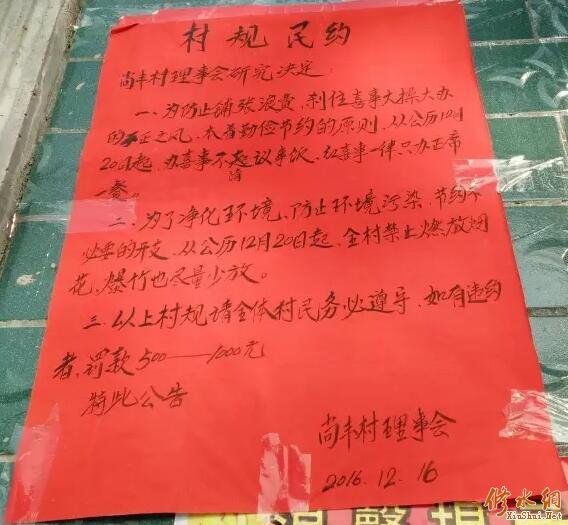 村规民约
尚丰村理事会研究决定:
一、为防止铺张浪费,刹住喜事大操大办
的不正之风,本着勤俭节约的原则,从公历12月
20日起,办喜事不起议事饭,红喜事一律只办正席
请
一餐。
二、为了净化环境、防止环境污染,节约不
必要的开支,从公历12月20日起,全村禁止燃放烟
花,爆竹也尽量少放。
三、以上村规请全体村民务必遵守,如有违约
者,罚款500——1000元
特此公告
尚丰村理事会
2016.12.16
修水网
XiuShui.Net